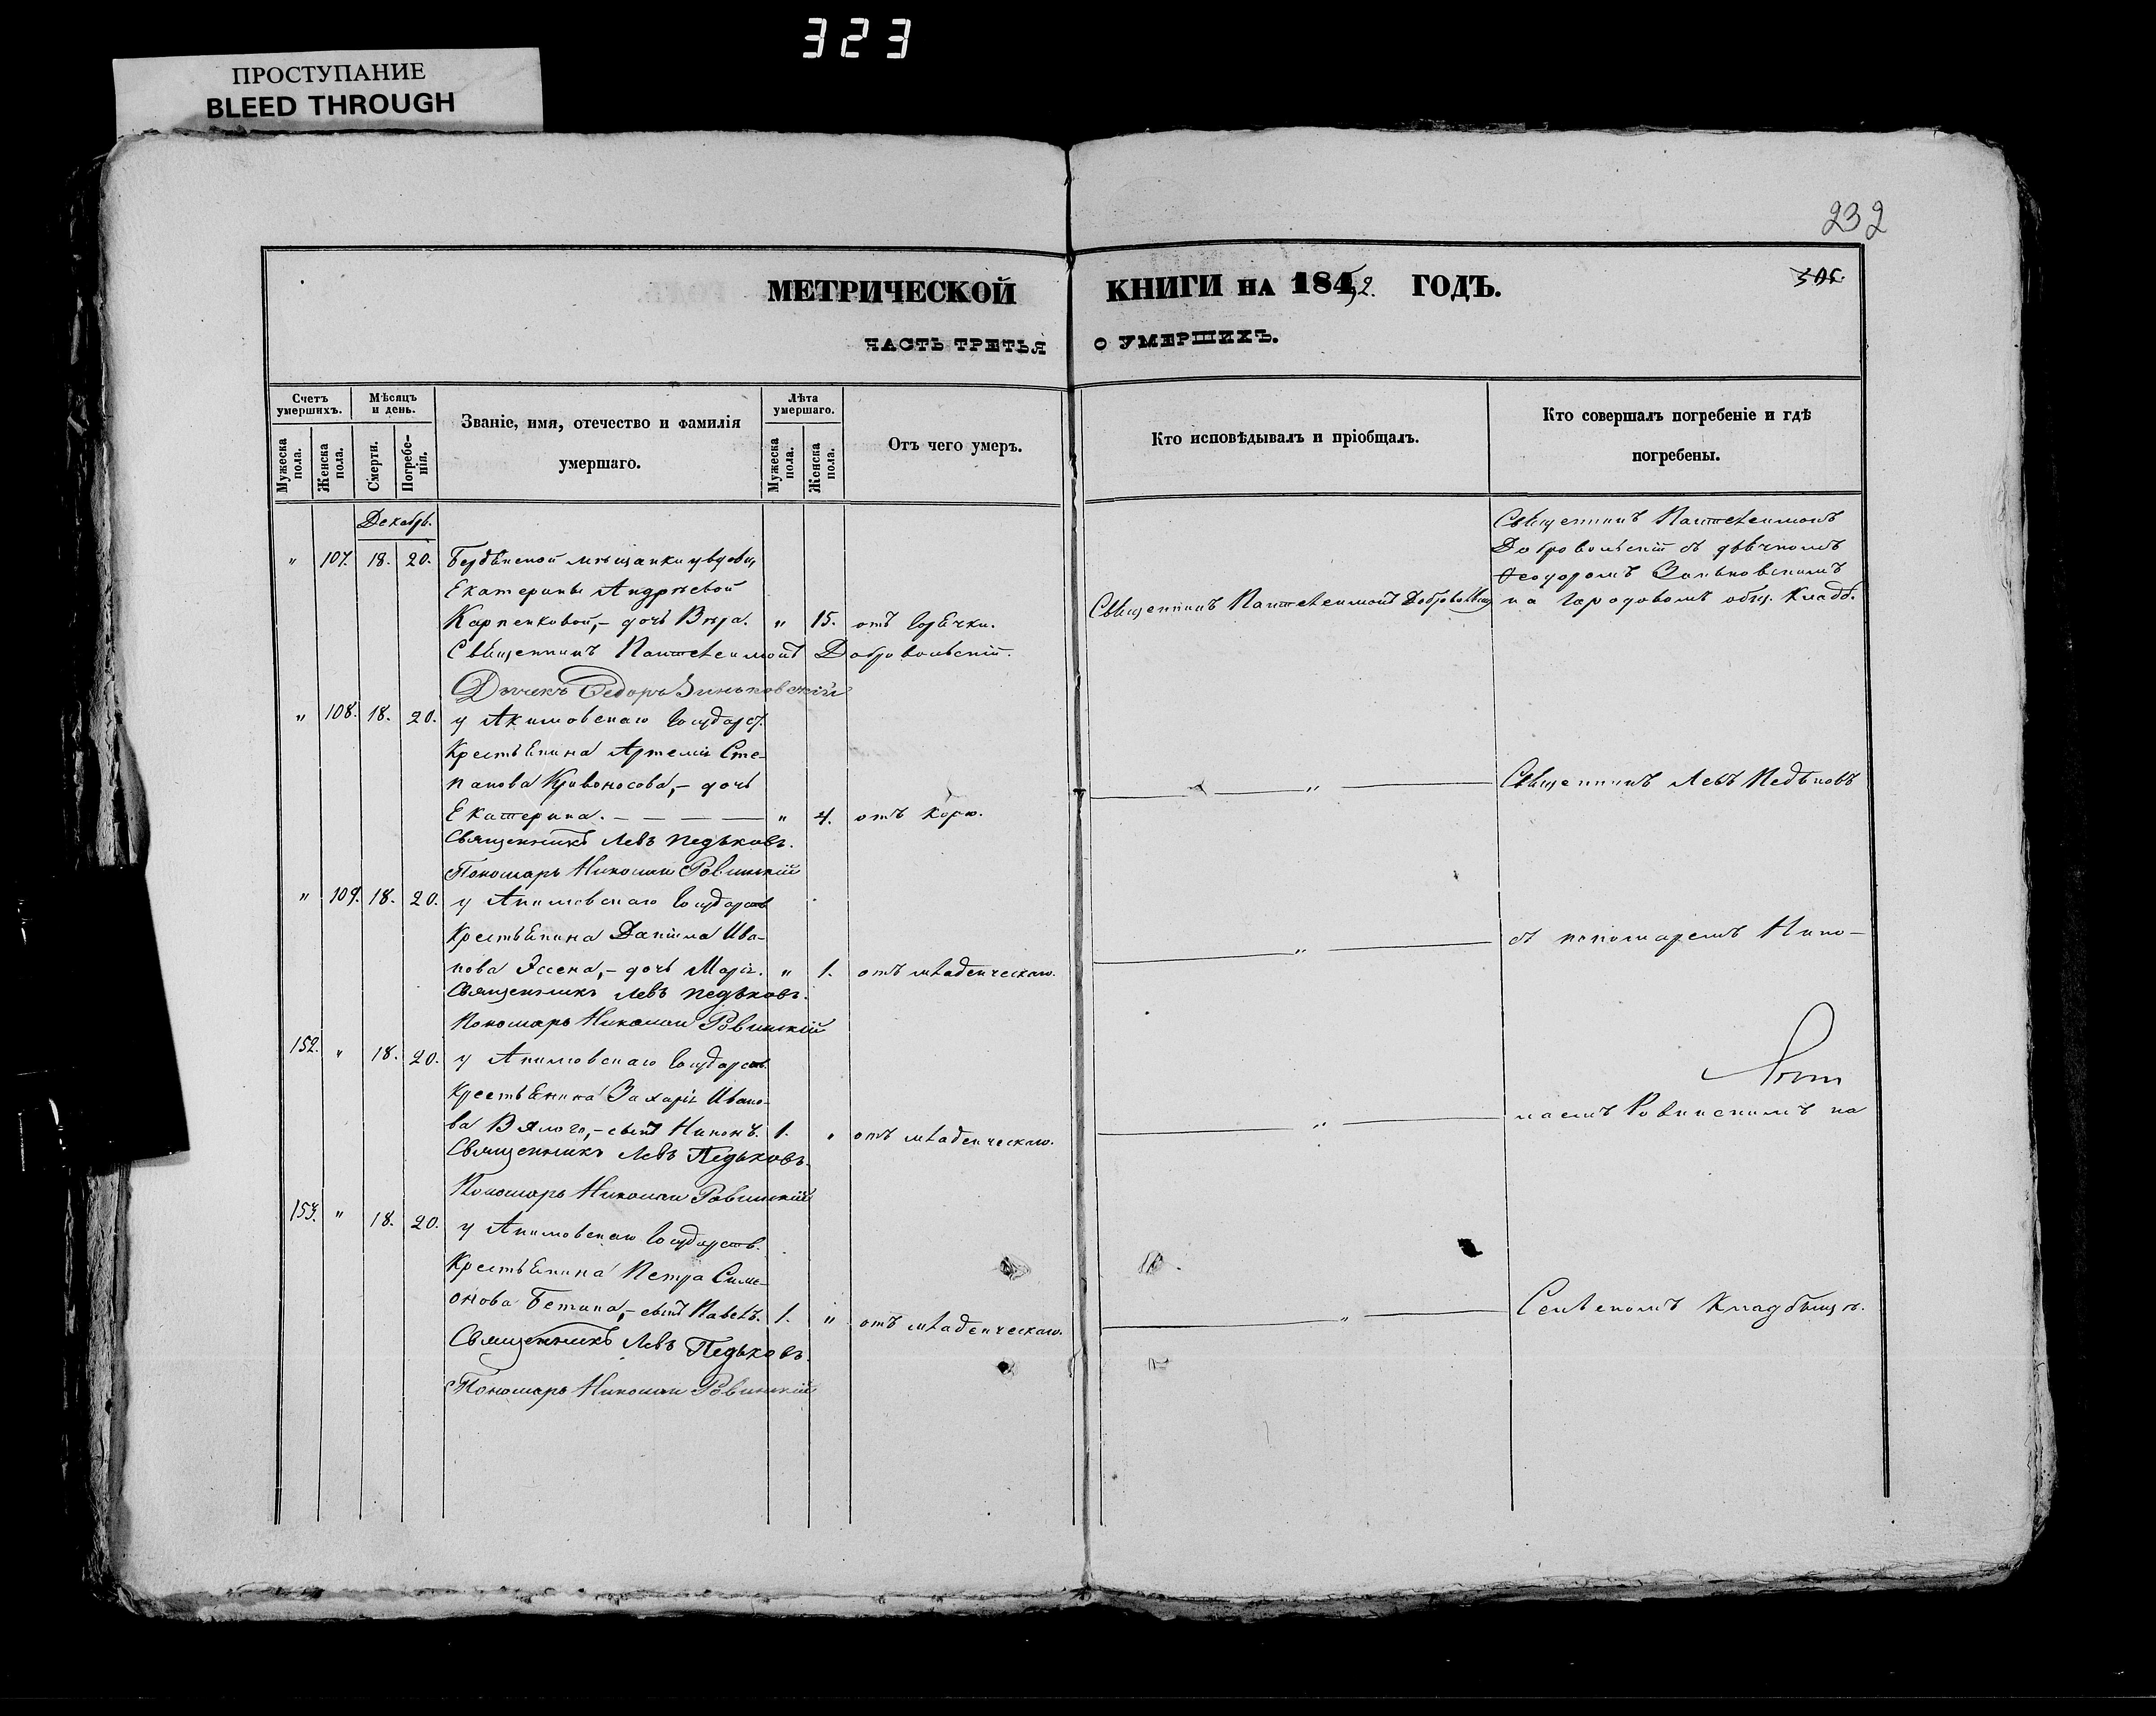 323
ПРОСТУПАНИЕ
BLEED THROUGH
232
МЕТРИЧЕСКОЙ КНИГИ НА 1852. ГОДЪ.
ЧАСТЬ ТРЕТЬЯ О УМЕРШИХЪ.
Счетъ умершихъ.
Мужеска пола.
Женска пола.
Мѣсяцъ и день.
Смерти.
Погребенія.
Званіе, имя, отечество и фамилія
умершаго.
Лѣта умершаго.
Мужеска пола.
Женска пола.
Отъ чего умеръ.
Кто исповѣдывалъ и пріобщалъ.
Кто совершалъ погребеніе и гдѣ
погребены.
Декабрь.
Священникъ Пантелеимонъ
Добровольскій съ дьячкомъ
" 107. 18. 20. Бердянской мѣщанки вдовы
Ѳеодоромъ Зиньковскимъ
Екатерины Андреевой
на городовомъ общ. кладб.
Карпенковой,- дочь Вѣра. " 15. отъ горячки. Священникъ Пантелеимонъ
Священникъ Пантелеимонъ Добровольскій.
Дьячекъ Ѳедоръ Зиньковскій
" 108. 18. 20. у Акимовскаго Государст.
Крестьянина Артемія Сте-
панова Кривоносова,- дочь
Екатерина. " 4. отъ корю. " Священникъ Левъ Педьковъ
Священникъ Левъ Педьковъ.
Пономарь Николай Ровинскій
" 109. 18. 20. у Акимовскаго Государств
Крестьянина Даніила Ива-
нова дочь Марія. " 1. отъ младенческаго. " съ пономаремъ Нико-
Священникъ Левъ Педьковъ.
Пономарь Николай Ровинскій
152. " 18. 20. у Акимовскаго Государств.
Крестьянина Захарія Ивано-
ва Вялого,- сынъ Никонъ. 1. " отъ младенческаго. " лаемъ Ровинскимъ на
Священникъ Левъ Педьковъ.
Пономарь Николай Ровинскій
153. " 18. 20. у Акимовскаго Государств.
Крестьянина Петра Сим-
онова сынъ Павелъ. 1. " отъ младенческаго. " Сельскомъ кладбищѣ.
Священникъ Левъ Педьковъ.
Пономарь Николай Ровинскій